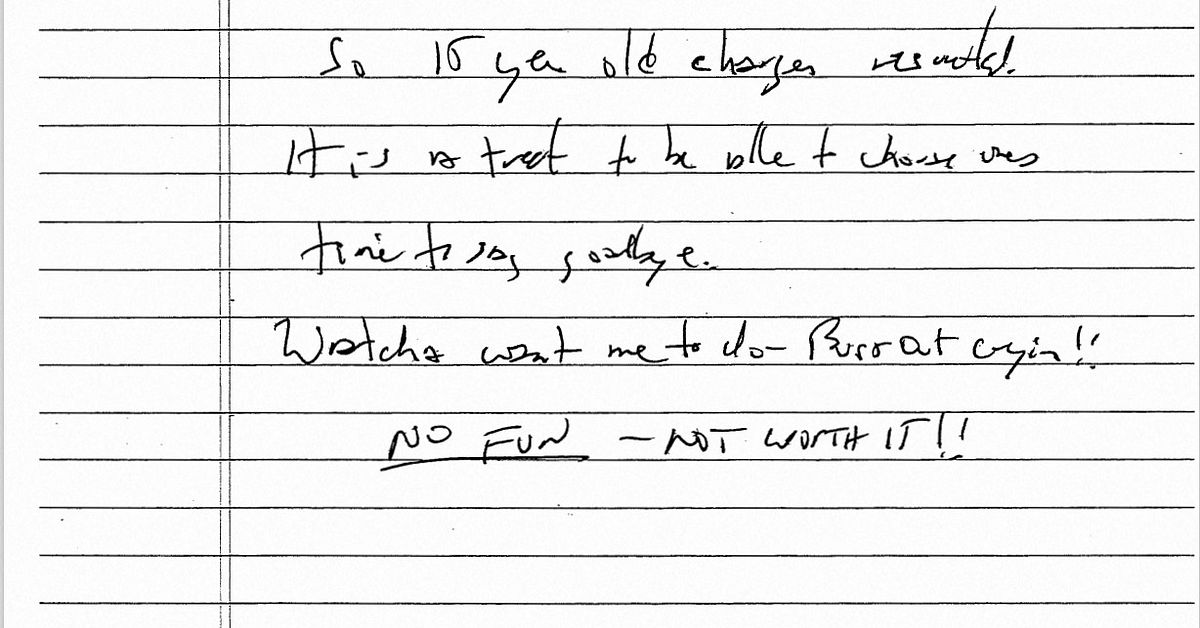 So 15 year old charges resulted!
It is a treat to be able to choose ones
time to say goodbye.
Watcha want me to do - Burst out cryin!!
NO FUN - NOT WORTH IT!!